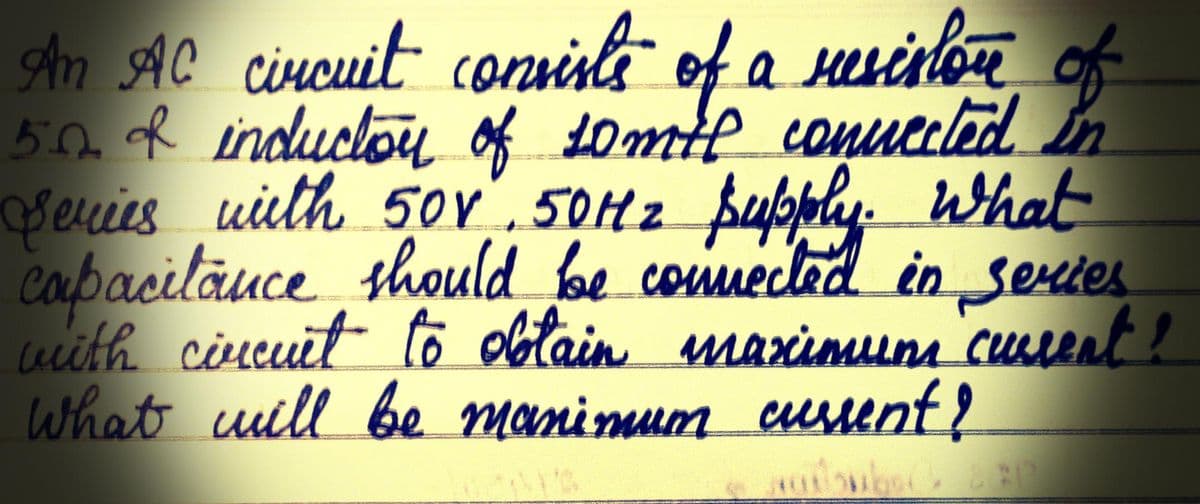 An AC circuit consists of a resistor of
5Ω & inductor of 10mH connected in
series with 50V, 50Hz supply. What
capacitance should be connected in series
with circuit to obtain maximum current?
What will be maximum current?